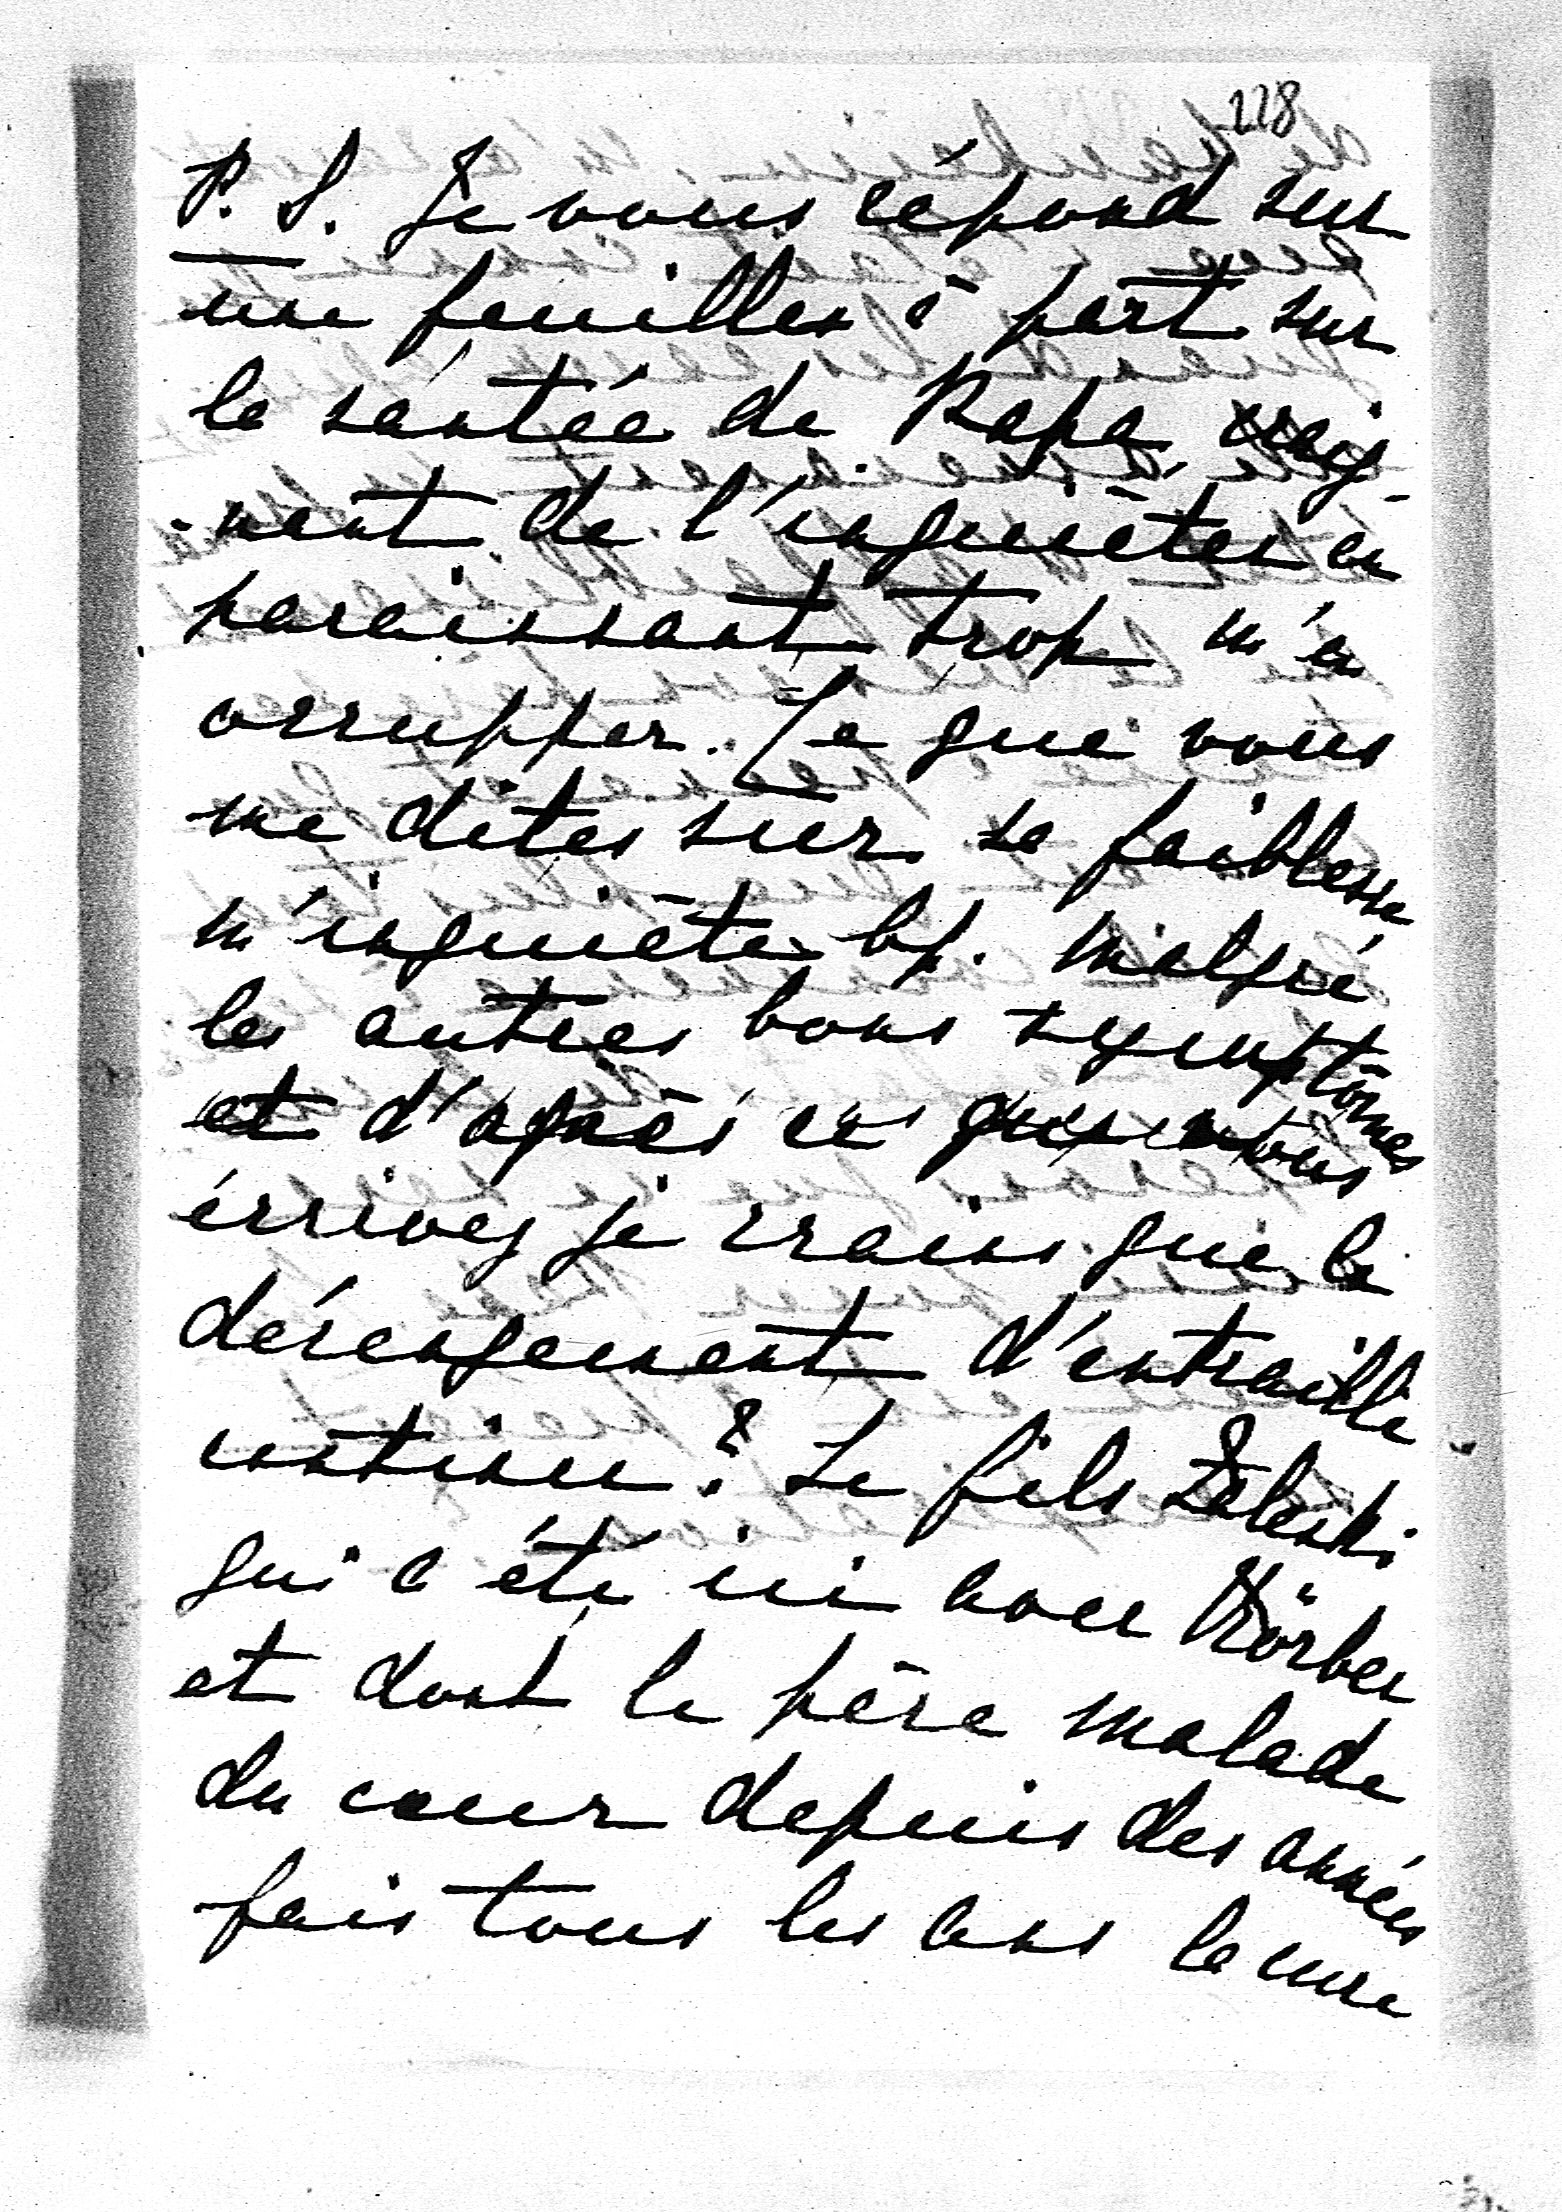 228
P. S. Je vous répond sur
une feuilles à part sur
la santée de Papa, craig-
-nant de l'inquiêter en
paraissant trop m'en
occupper. Ce que vous
me dites sur sa faiblesse
m'inquiète bp. malgré
les autres bons symptômes
et d'après ce que vous
écrivez je crains que le
dérengement d'entraille
continue? Le fils Zaleski
qui a été ici avec Körber
et dont le père malade
du coeur depuis des années
fais tous les ans la cure